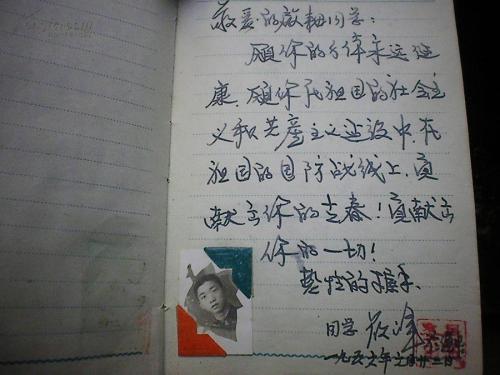 敬爱的 同学：
愿你的身体永远健
康 愿你在祖国的社会主
义和共产主义建设中，在
祖国的国防战线上，贡
献出你的青春！贡献出
你的一切！
握手
同学
一九五六年 月廿二日